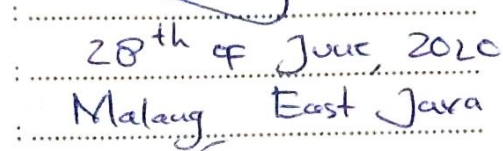 : 28th of June, 2020
: Malang East Java
: